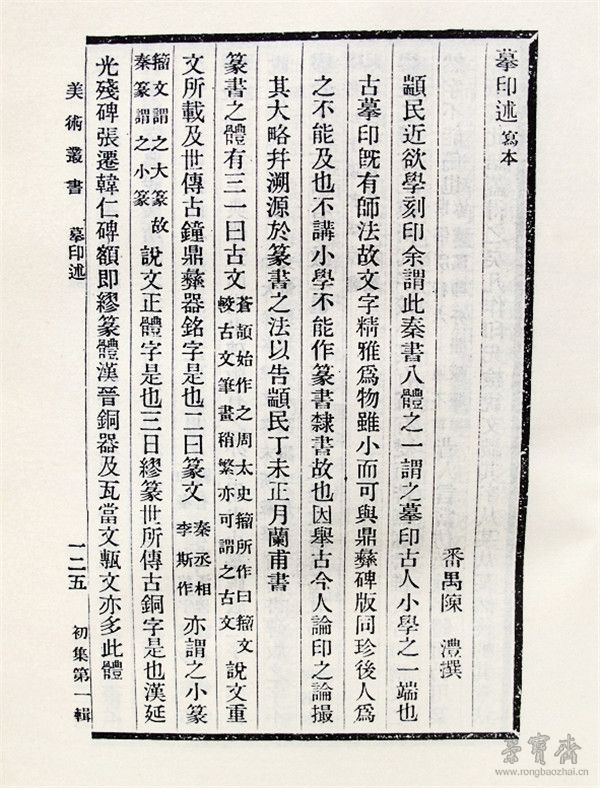 摹印述 寫本
番禺陳 澧撰
顓民近欲學刻印余謂此秦書八體之一謂之摹印古人小學之一端也
古摹印既有師法故文字精雅爲物雖小而可與鼎彝碑版同珍後人爲
之不能及也不講小學不能作篆書隸書故也因舉古今人論印之論撮
其大略幷溯源於篆書之法以告顓民丁未正月蘭甫書
篆書之體有三一曰古文 蒼頡始作之周太史籀所作曰籀文 較古文筆畫稍繁亦可謂之古文 說文重
文所載及世傳古鐘鼎彝器銘字是也二曰篆文 秦丞相 李斯作 亦謂之小篆
籀文謂之大篆故 秦篆謂之小篆 說文正體字是也三曰繆篆世所傳古銅字是也漢延
光殘碑張遷韓仁碑額即繆篆體漢晉銅器及瓦當文甎文亦多此體
美術叢書 摹印述 一二五 初集第一輯
榮寶齋
www.rongbaozhai.cn